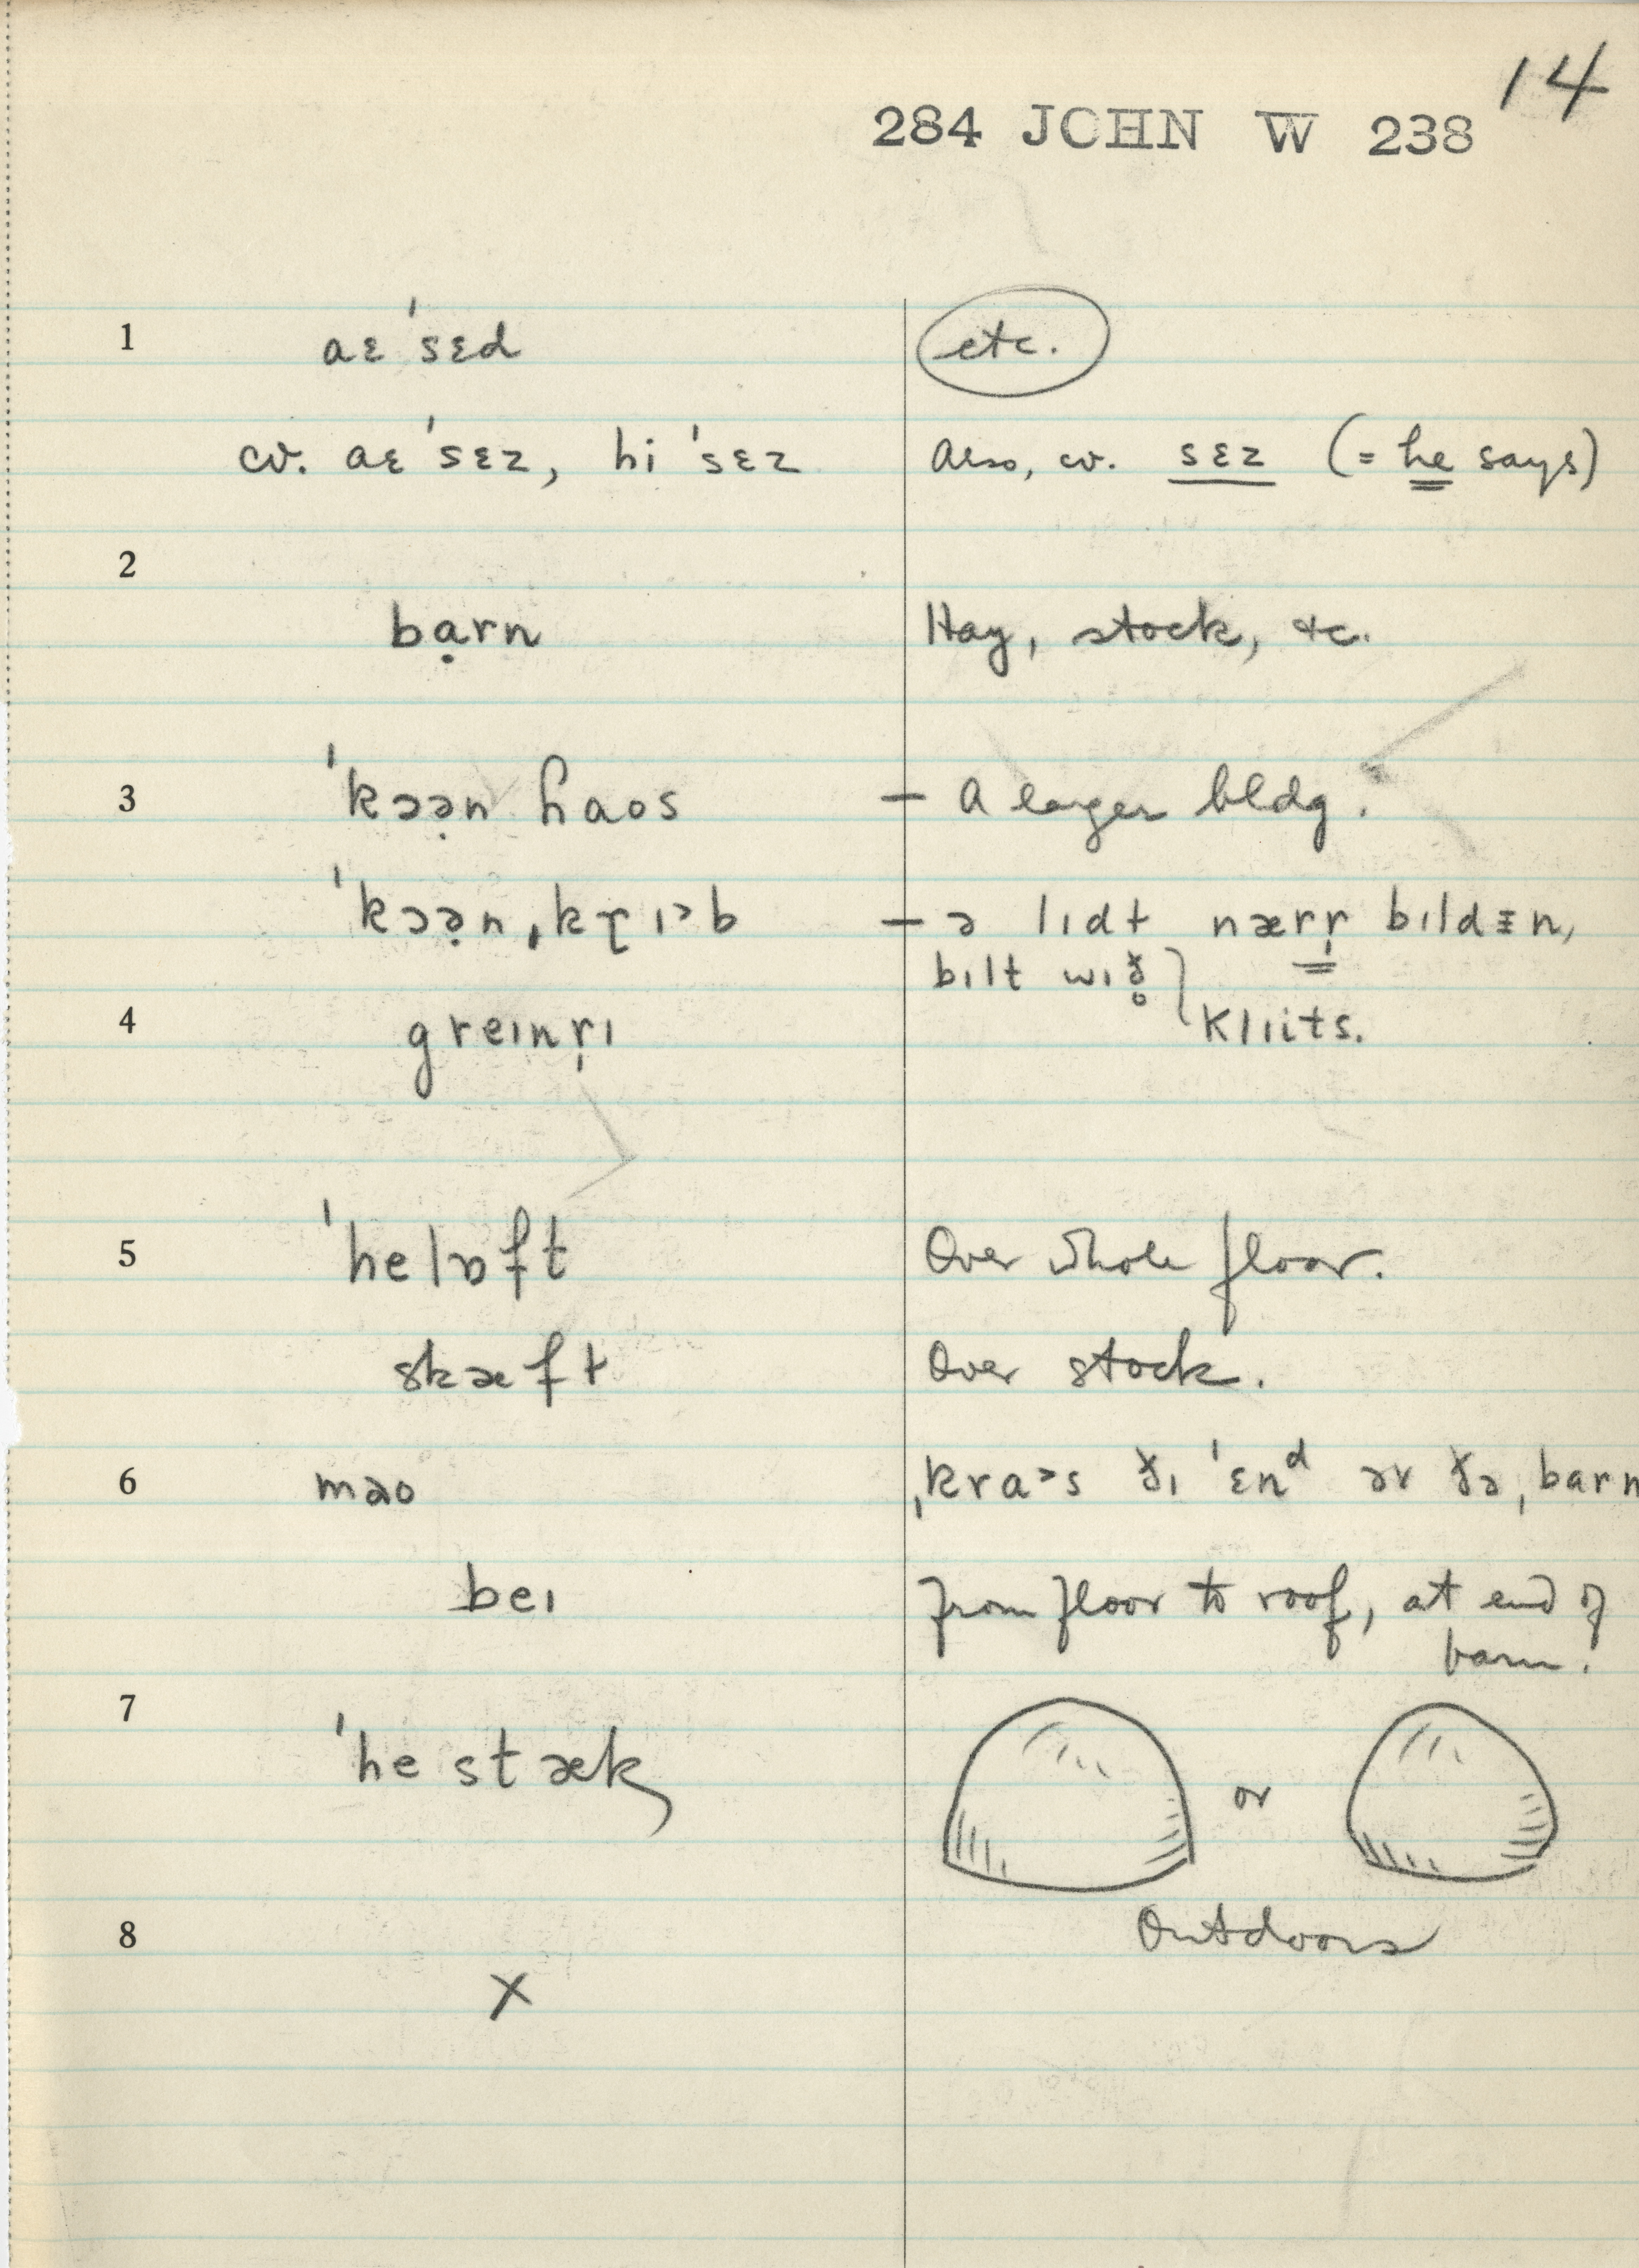 14
284 JOHN W 238
1 aɛ ˈsɛd etc.
cv. aɛ ˈsɛz, hi ˈsɛz Also, cv. sɛz (= he says)
2
bạrn Hay, stock, etc.
3 ˈkɔə̣n ɦaos – A larger bldg.
ˈkɔə̣n ˌkɽɪ˃b – ə lɪdt nærr̩ bɪldᵻn,
bɪlt wɪð̥
4 greɪnr̩ɪ klɪits.
5 ˈhelɒft Over whole floor.
skæft Over stock.
6 məo ˌkra˃s ðɪ ˈɛnᵈ ər ðə ˌbarn
beɪ From floor to roof, at end of
barn.
7 ˈhe stæk or
8 Outdoors
X